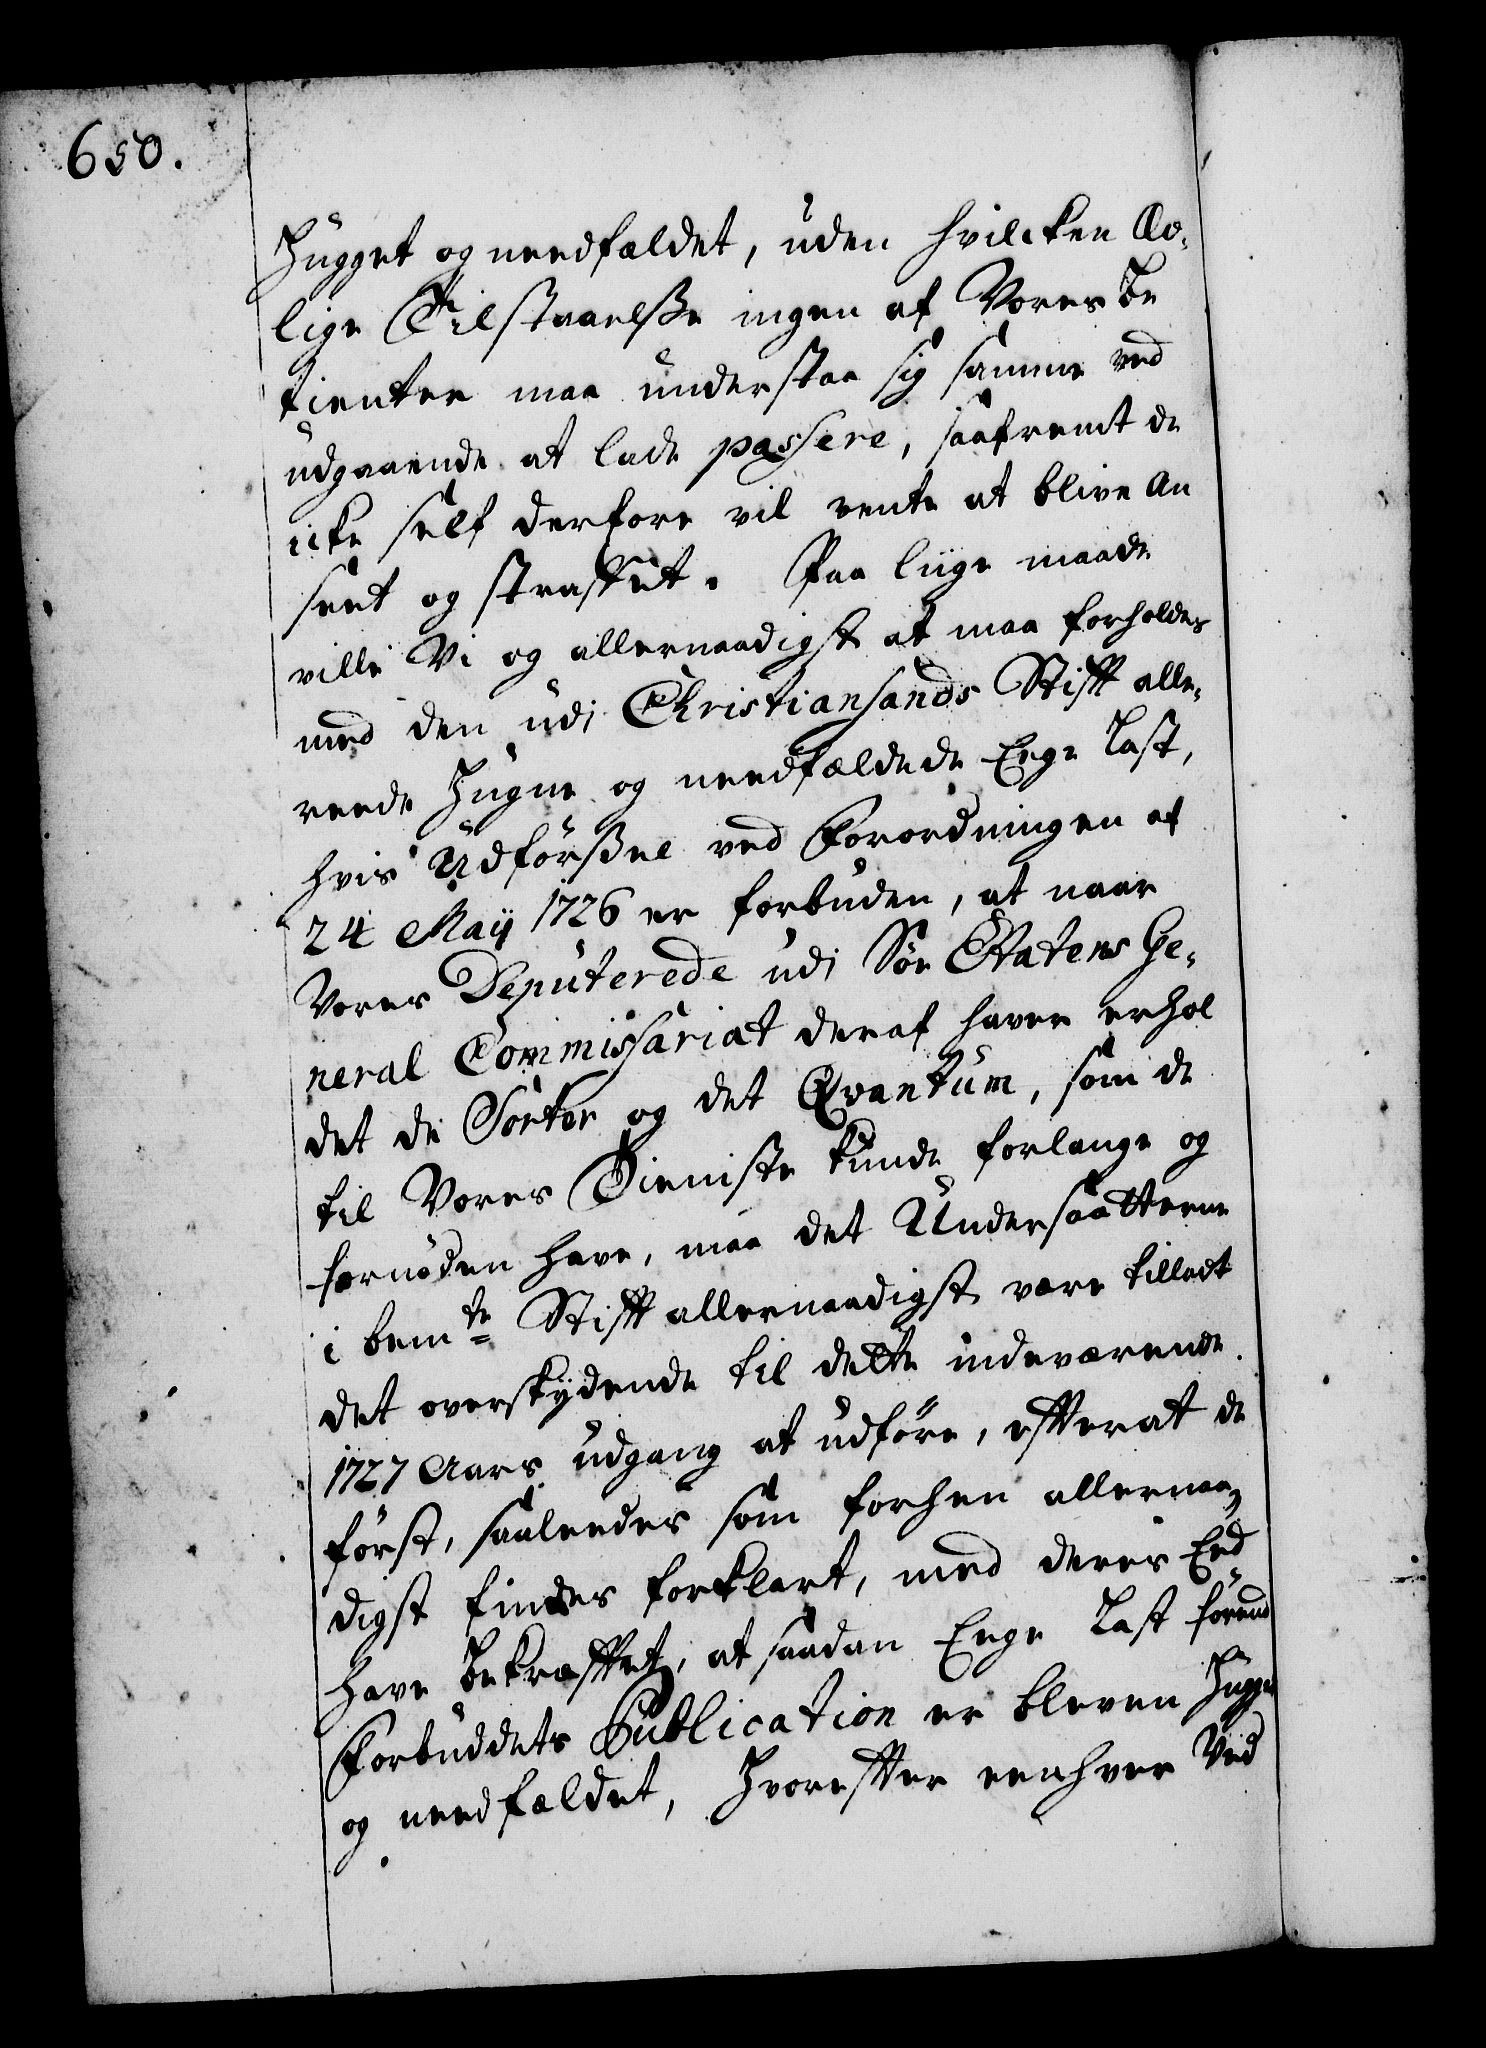 650.
Hugget og needfældet, uden hvilcken Æd-
lige Tilstaaelsse ingen af Vores be
tientere maa understaa sig samme ved
udgaaende at lade passere, saafremt de
icke self derfore vil vente at blive an
seet og straffet. Paa liige maade
ville Vi og allernaadigst at maa forholdes
med den udi Christiansands Stifft alle-
reede Hugne og needfældede Eege Last,
hvis Udførssel ved Forordningen af
24 Maij 1726 er forbuden, at naar
Vores Deputerede udi Søe Etatens Ge-
neral Commissariat deraf haver erhol
det de Sorter og det Qvantum, som de
til Vores Dieniste kunde forlange og
fornøden have, maa det Undersaatterne
i bemte Stifft allernaadigst være tilladt
det overskydende til dette indeværende
1727 Aars udgang at udføre, efterat de
først, saaleedes som forhen allernaa-
digst findes forklart, med deres Eed
have bekræfftet, at saadan Eege Last førend
Forbuddets Publication er bleven Hugget
og needfældet, Hvorefter eenhver Ved